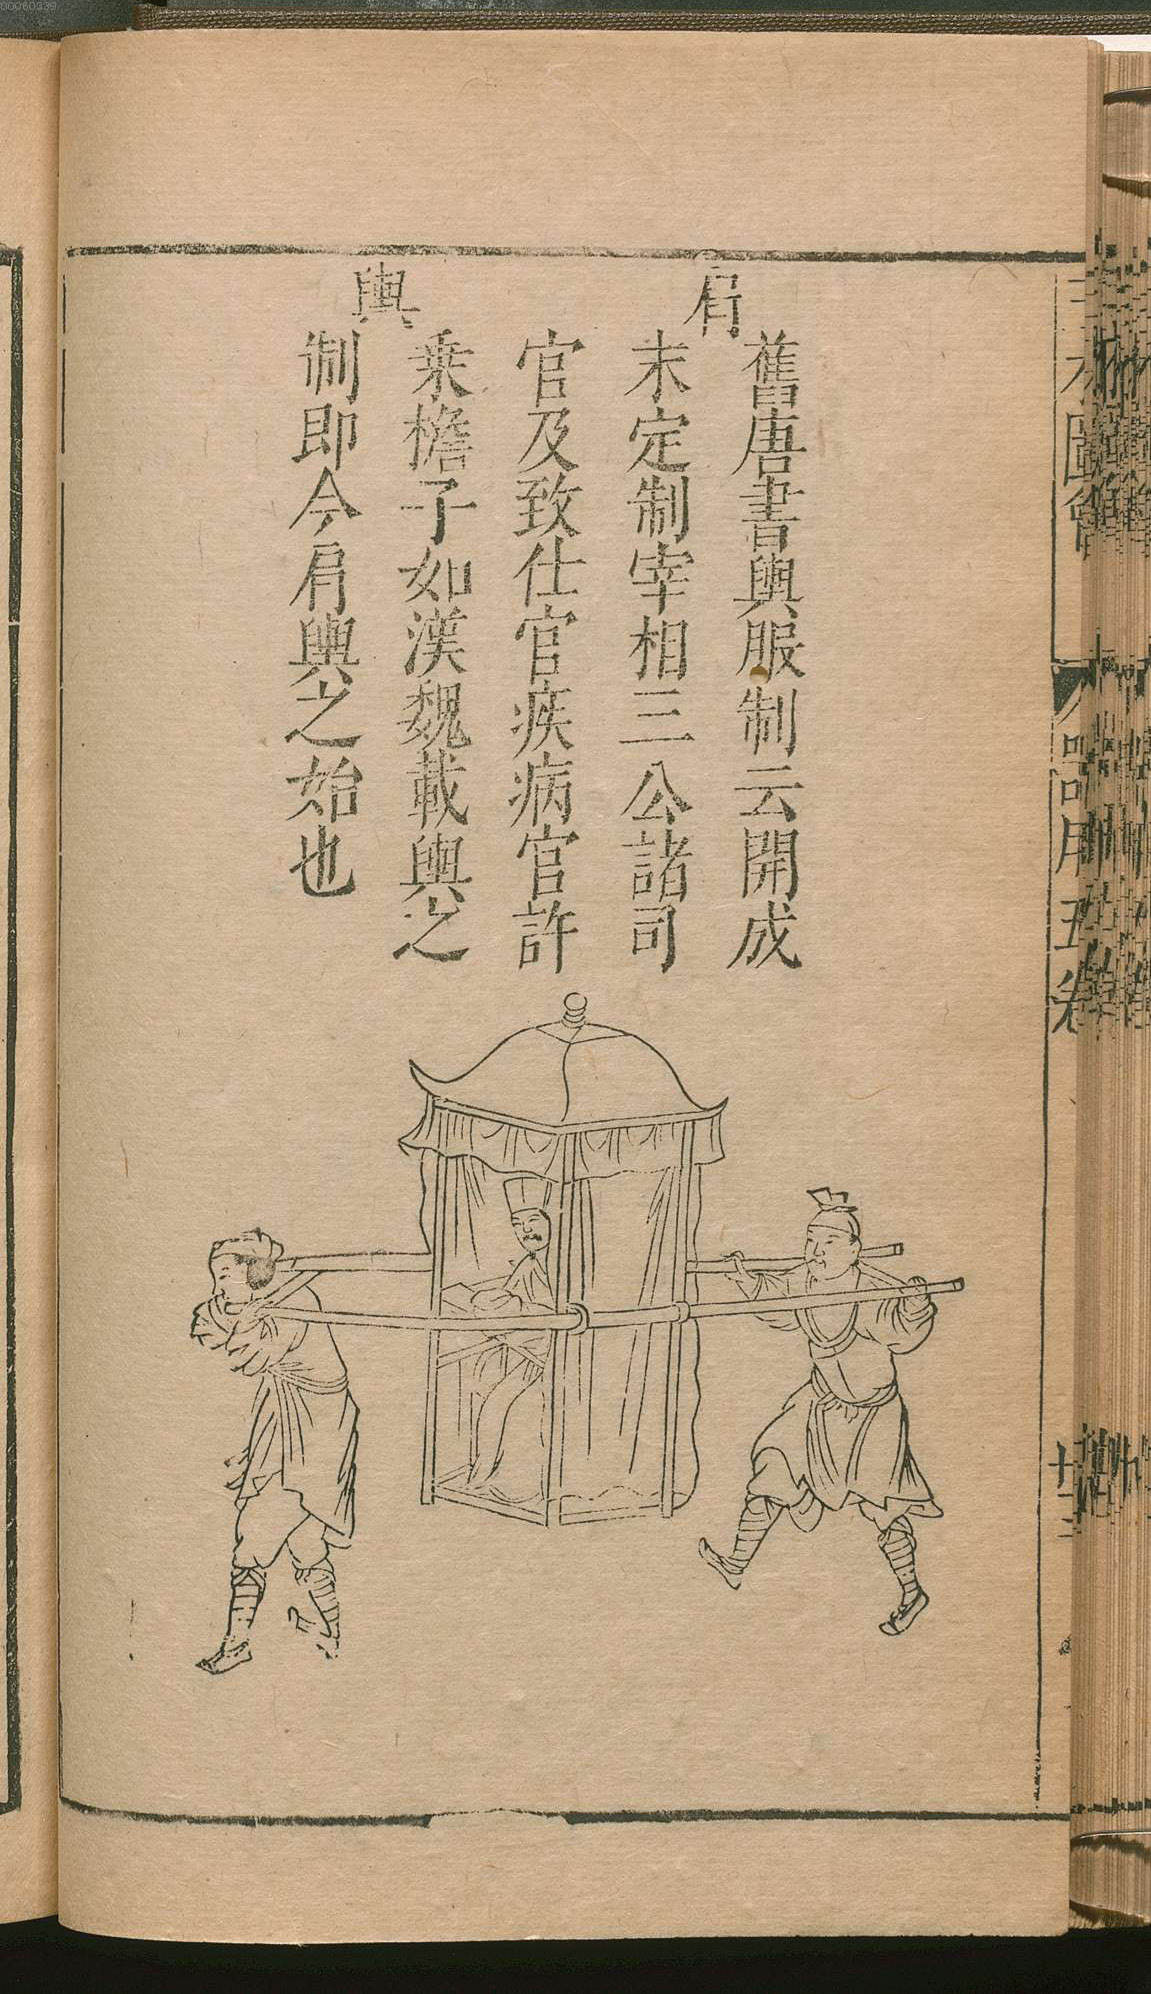 肩輿
舊唐書輿服制云開成
末定制宰相三公諸司
官及致仕官疾病官許
乗檐子如漢魏載輿之
制即今肩輿之始也
器用五卷
00060339